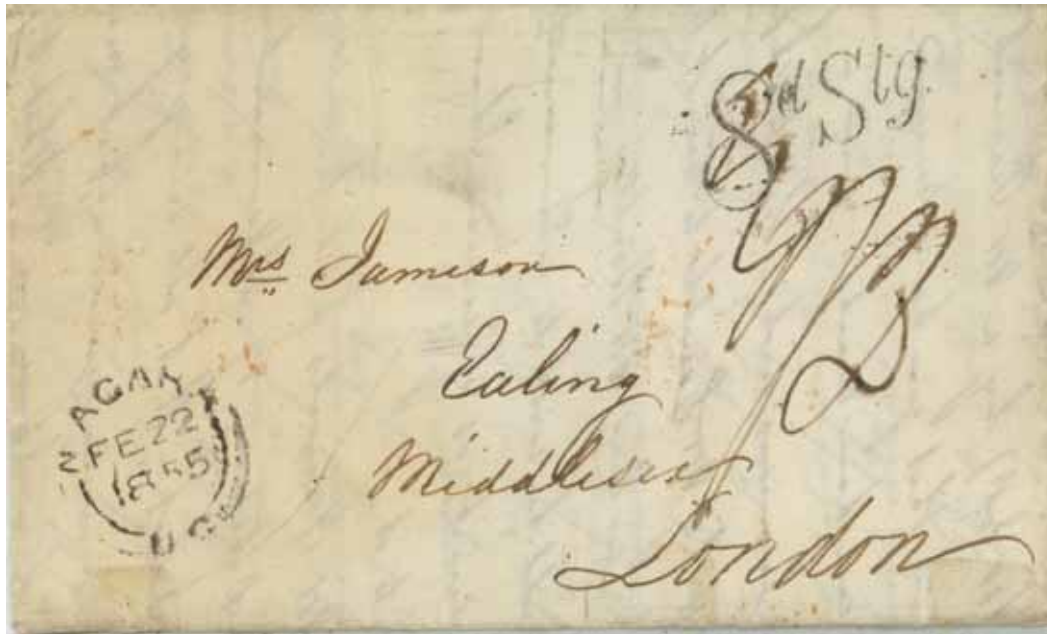 8d Stg.
Mrs Jameson
Ealing
Middlesex
London
NIAGARA
FE 22
1855
U.C.